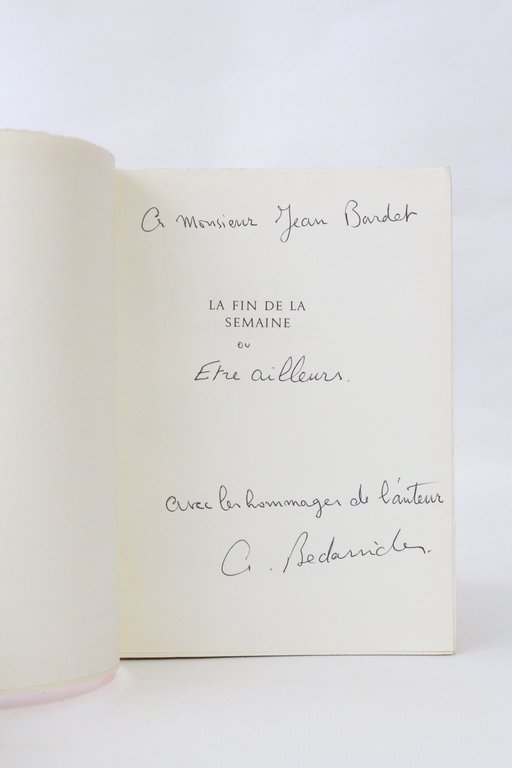 A Monsieur Jean Bardet
LA FIN DE LA
SEMAINE
ou
Etre ailleurs.
avec les hommages de l'auteur
A. Bedarrides.